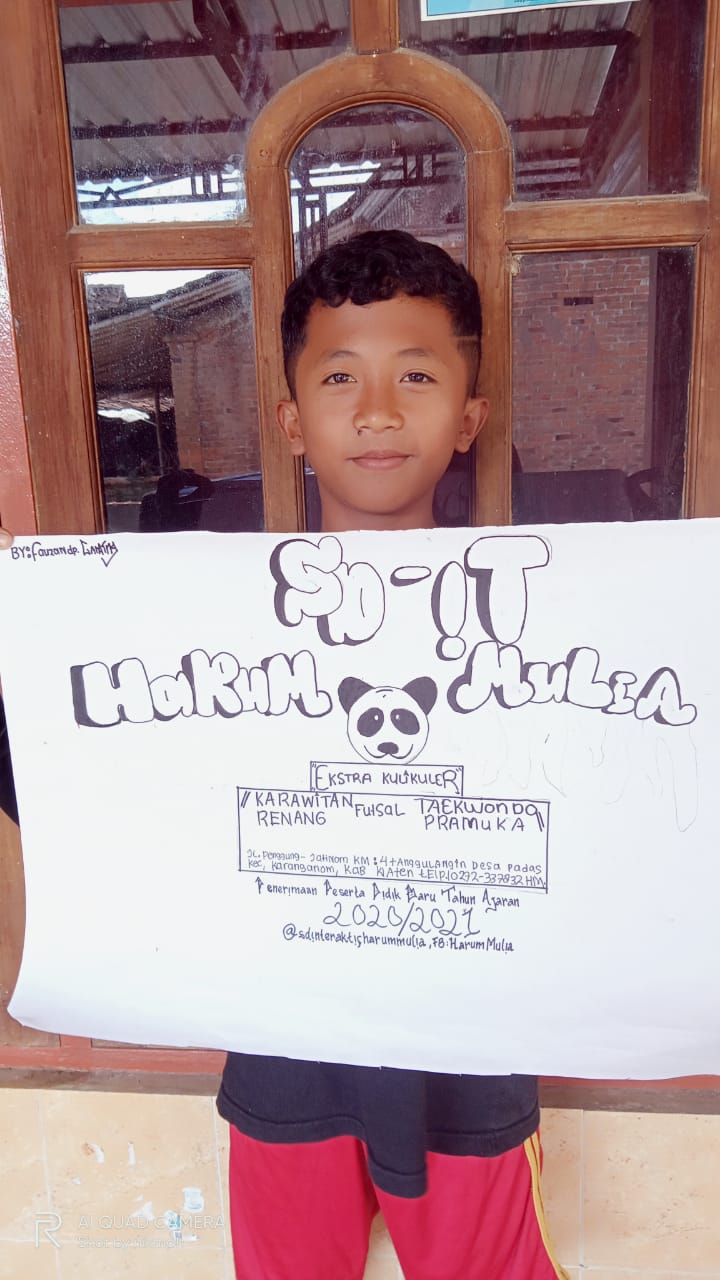 BY: Fauzan dp.
SD-iT
HaRuM MuLiA
"EKSTRA KULIKULER"
"KARAWITAN FUtSAL TAEKWONDO
RENANG PRAMUKA"
JL. Penggung - Jatinom KM: 4 tAngguLAngin Desa Padas
Kec, Karanganom, KAB KlAten tElp.(0272-337832 HM.
Penerimaan Peserta Didik Baru Tahun Ajaran
2020/2021
@sdinteraktifharummulia, FB: Harum Mulia
AI QUAD CAMERA